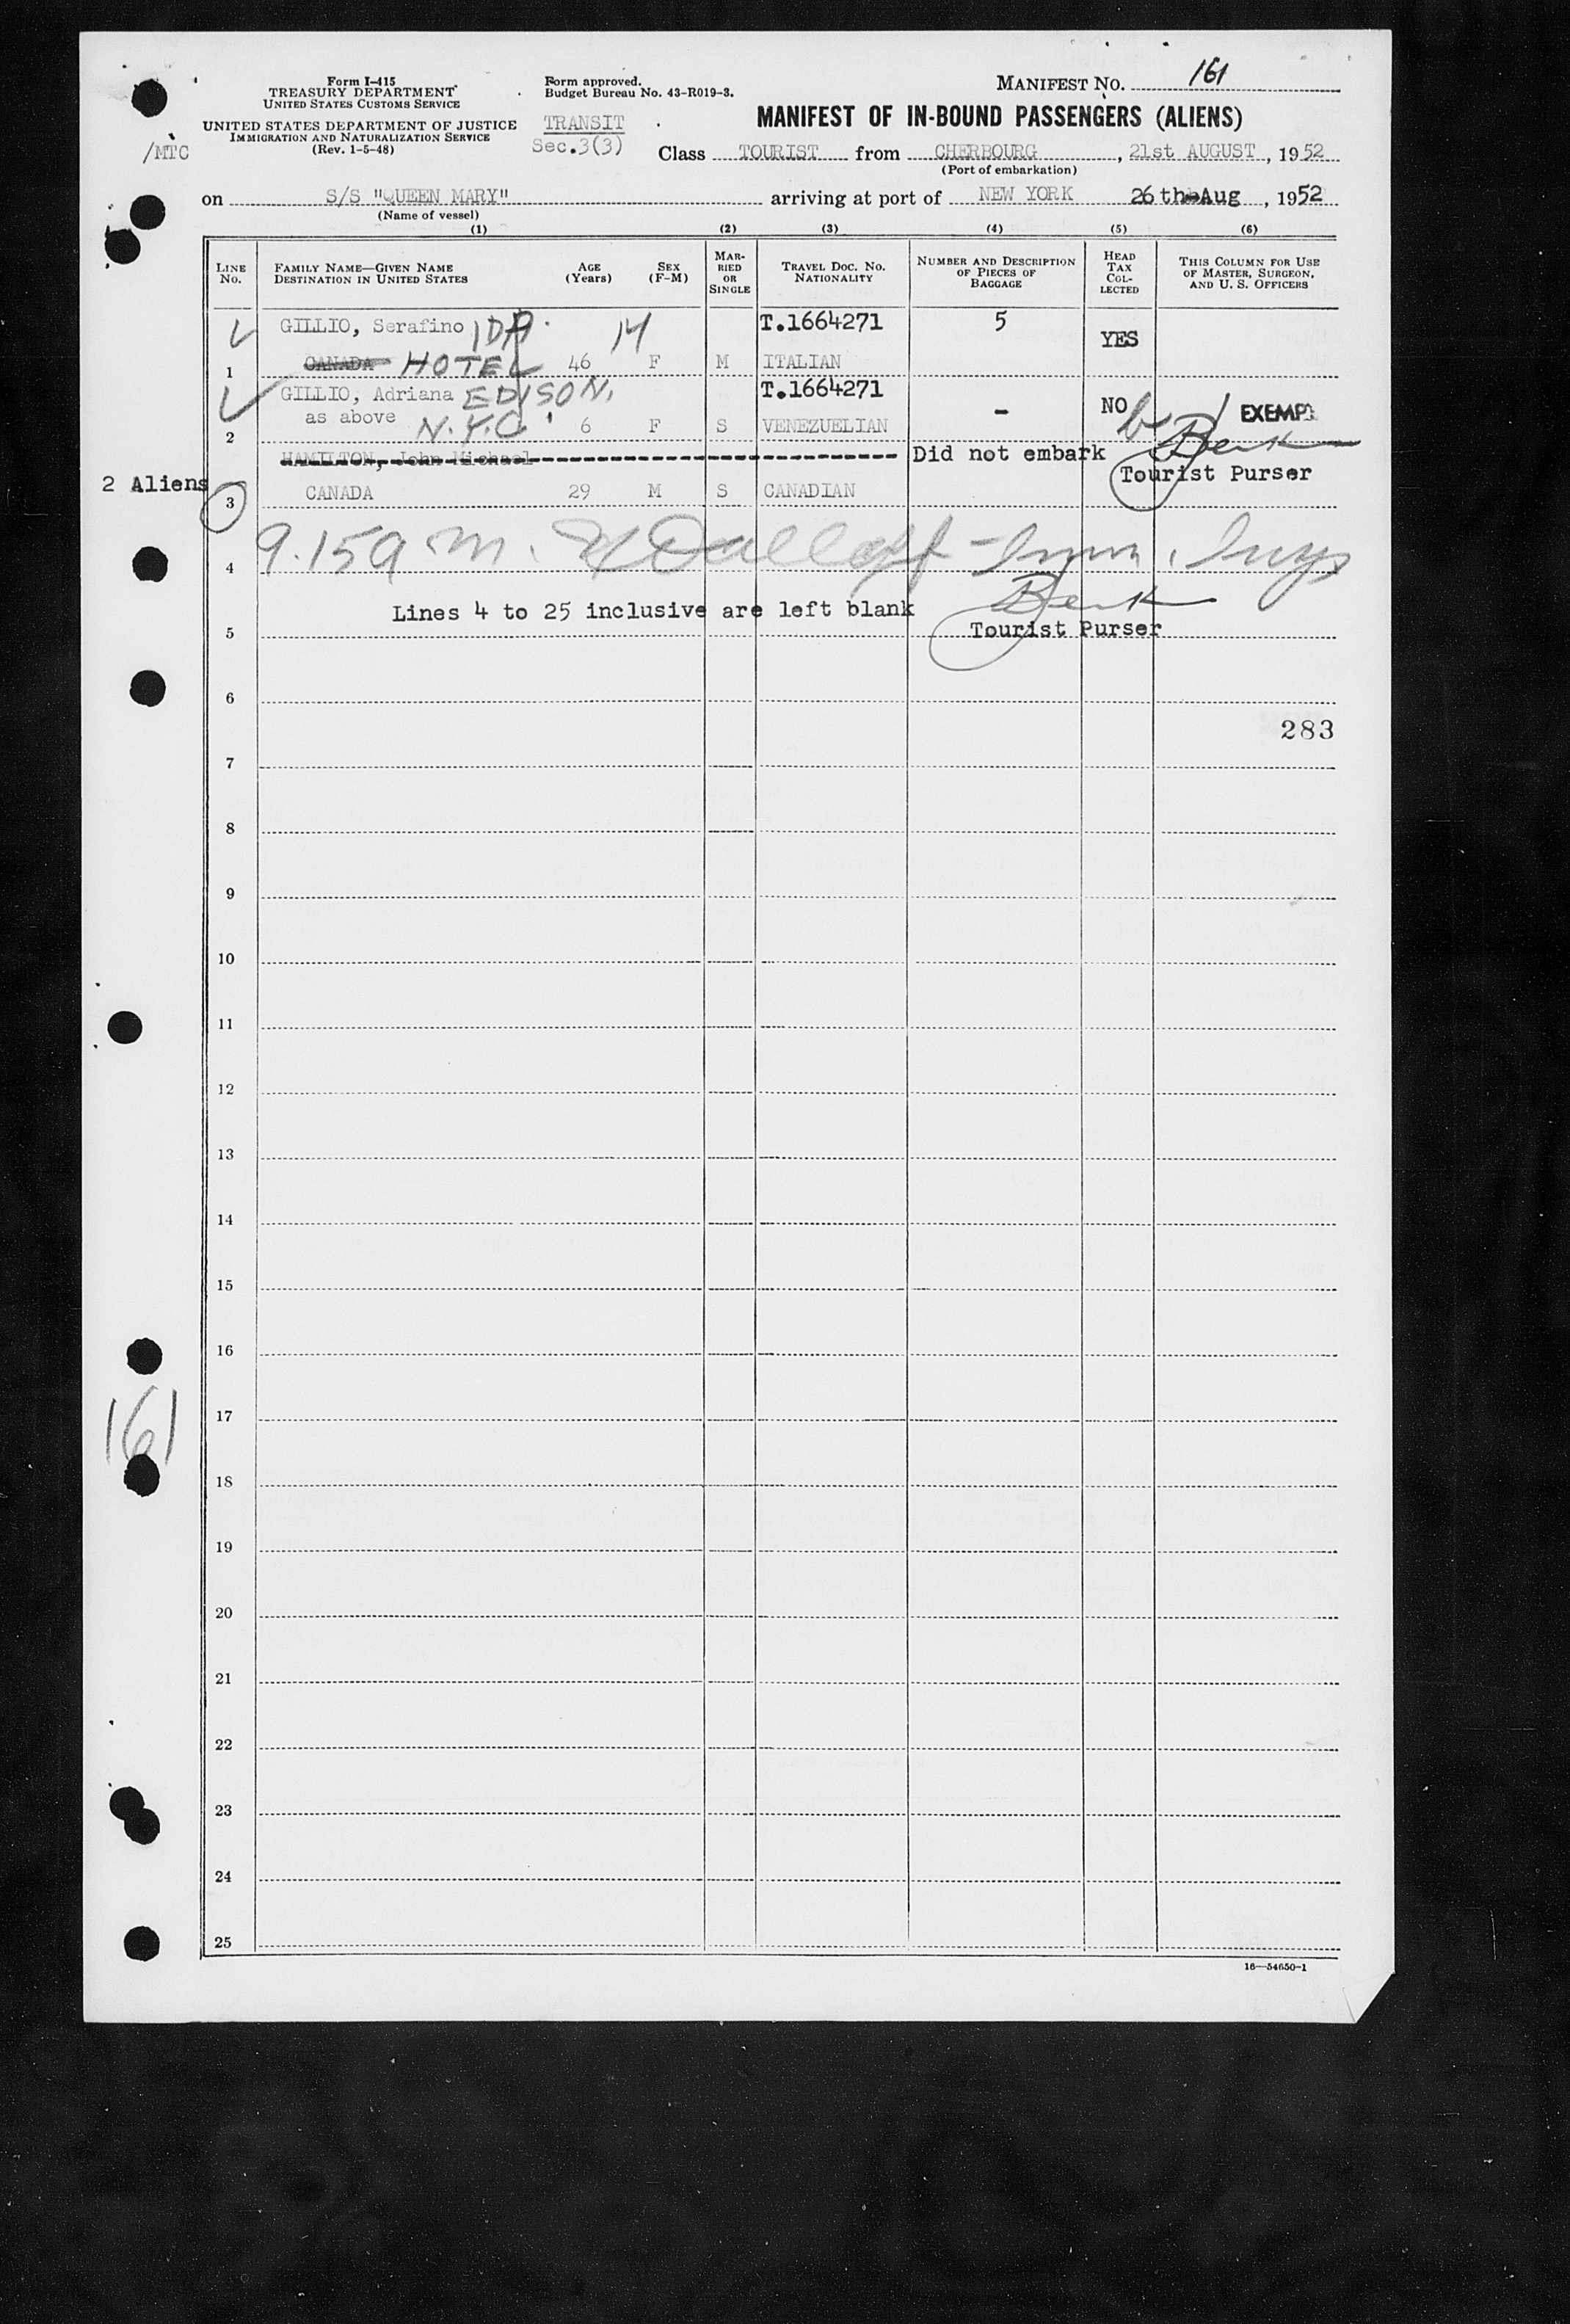 Form I-415
TREASURY DEPARTMENT
UNITED STATES CUSTOMS SERVICE
UNITED STATES DEPARTMENT OF JUSTICE
IMMIGRATION AND NATURALIZATION SERVICE
(Rev. 1-5-48)
/MTC
Form approved.
Budget Bureau No. 43-R019-3.
TRANSIT
Sec.3(3)
MANIFEST NO. 161
MANIFEST OF IN-BOUND PASSENGERS (ALIENS)
Class TOURIST from CHERBOURG, 21st AUGUST, 1952
(Port of embarkation)
on S/S "QUEEN MARY" arriving at port of NEW YORK 26th Aug, 1952
(Name of vessel)
(1) (2) (3) (4) (5) (6)
LINE NO. FAMILY NAME—GIVEN NAME DESTINATION IN UNITED STATES AGE (Years) SEX (F-M) MARRIED OR SINGLE TRAVEL DOC. NO. NATIONALITY NUMBER AND DESCRIPTION OF PIECES OF BAGGAGE HEAD TAX COLLECTED THIS COLUMN FOR USE OF MASTER, SURGEON, AND U. S. OFFICERS
GILLIO, Serafino IDA. 14 T.1664271 5 YES
1 CANADA HOTEL 46 F M ITALIAN
GILLIO, Adriana EDISON, T.1664271
as above N.Y.C. 6 F S VENEZUELIAN - NO EXEMPT
2
HAMILTON, John Michael Did not embark
2 Aliens Tourist Purser
3 CANADA 29 M S CANADIAN
9.15 a.m.
4
Lines 4 to 25 inclusive are left blank
5 Tourist Purser
6
283
7
8
9
10
11
12
13
14
15
16
161
17
18
19
20
21
22
23
24
25
16—54650-1